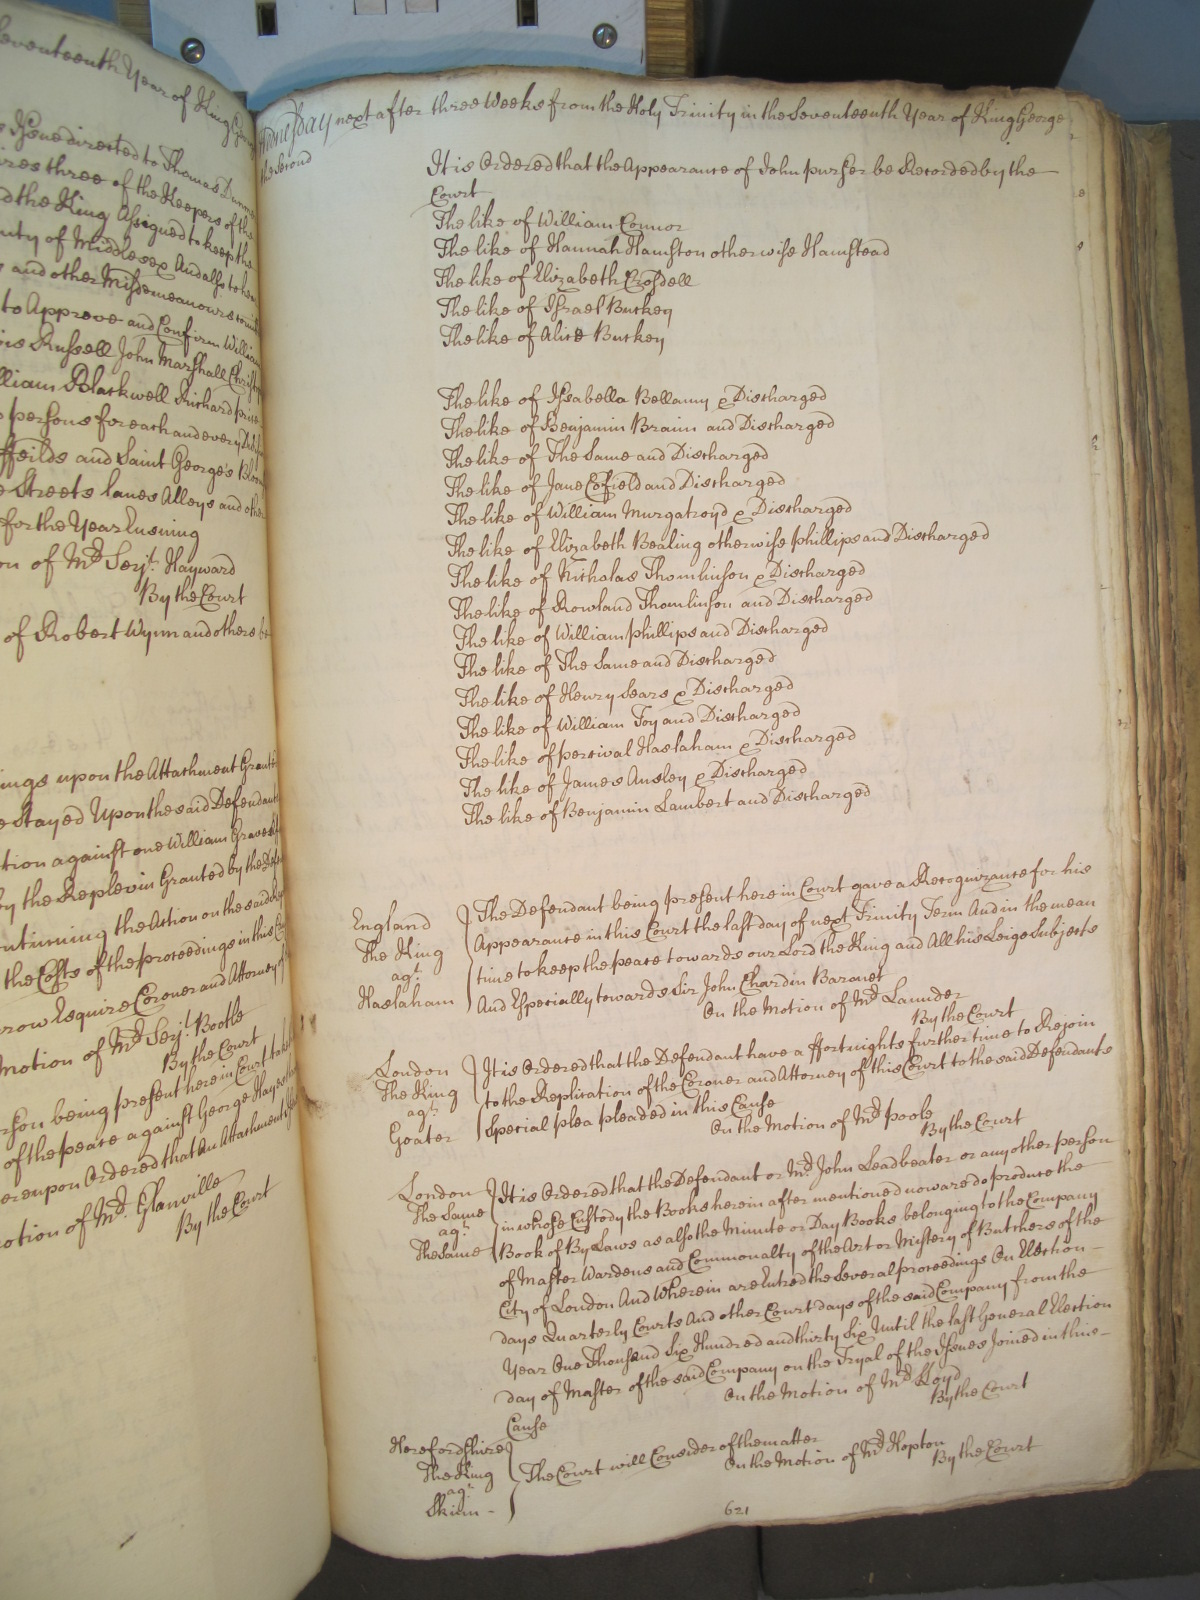 Seventeenth Year of King George
Issue directed to Thomas
three of the Keepers of the
the King Assigned to keep the
County of Middlesex And also to hear
and other Misdemeanours
to Approve and Confirm William
Russell John Marshall
William Blackwell Richard
persons for each and every
ffeilds and Saint George's
Streets lanes Alleys and other
for the Year Ensuing
on of Mr. Serjt. Hayward
By the Court
of Robert Wynn and others
upon the Attachment
Stayed Upon the said Defendant
against one William Graves
by the Replevin Granted by the
the Action on the said
the Costs of the proceedings in this
Esquire Coroner and Attorney of
Motion of Mr. Serjt. Bootle
By the Court
being present here in Court
of the peace against George Hayes
Ordered that an Attachment
Motion of Mr. Glanville
By the Court
Wednesday next after three Weeks from the Holy Trinity in the Seventeenth Year of King George
the Second
It is Ordered that the Appearance of John purser be Recorded by the
Court
The like of William Connor
The like of Hannah Hamston otherwise Hamstead
The like of Elizabeth Crosdell
The like of Israel Buckey
The like of Alice Buckey
The like of Isabella Bellamy & Discharged
The like of Benjamin Brain and Discharged
The like of The Same and Discharged
The like of Jane Cofield and Discharged
The like of William Murgatroyd & Discharged
The like of Elizabeth Bealing otherwise phillips and Discharged
The like of Nicholas Thomlinson & Discharged
The like of Rowland Thomlinson and Discharged
The like of William phillips and Discharged
The like of The Same and Discharged
The like of Henry Sears & Discharged
The like of William Foy and Discharged
The like of percival Haslaham & Discharged
The like of James Ansley & Discharged
The like of Benjamin Lambert and Discharged
England
The King
agt.
Haslaham
The Defendant being present here in Court gave a Recognizance for his
Appearance in this Court the last day of next Trinity Term And in the mean
time to keep the peace towards our Lord the King and All his Leige Subjects
And Especially towards Sir John Chardin Baronet
On the Motion of Mr. Launder
By the Court
London
The King
agt.
Goater
It is Ordered that the Defendant have a ffortnights further time to Rejoin
to the Replication of the Coroner and Attorney of this Court to the said Defendants
Special plea pleaded in this Cause
On the Motion of Mr. poole
By the Court
London
The Same
agt.
The Same
It is Ordered that the Defendant or Mr. John Leadbeater or any other person
in whose Custody the Books herein after mentioned now are do produce the
Book of By Laws as also the Minute or Day Books belonging to the Company
of Master Wardens and Commonalty of the Art or Mistery of Butchers of the
City of London And wherein are Entred the Several proceedings On Election
days Quarterly Courts And other Court days of the said Company from the
Year One Thousand Six Hundred and thirty Six Until the last General Election
day of Master of the said Company on the Tryal of the Issues Joined in this
Cause
On the Motion of Mr. Lloyd
By the Court
Herefordshire
The King
agt.
Skinn
The Court will Consider of the matter
On the Motion of Mr. Hopton
By the Court
621